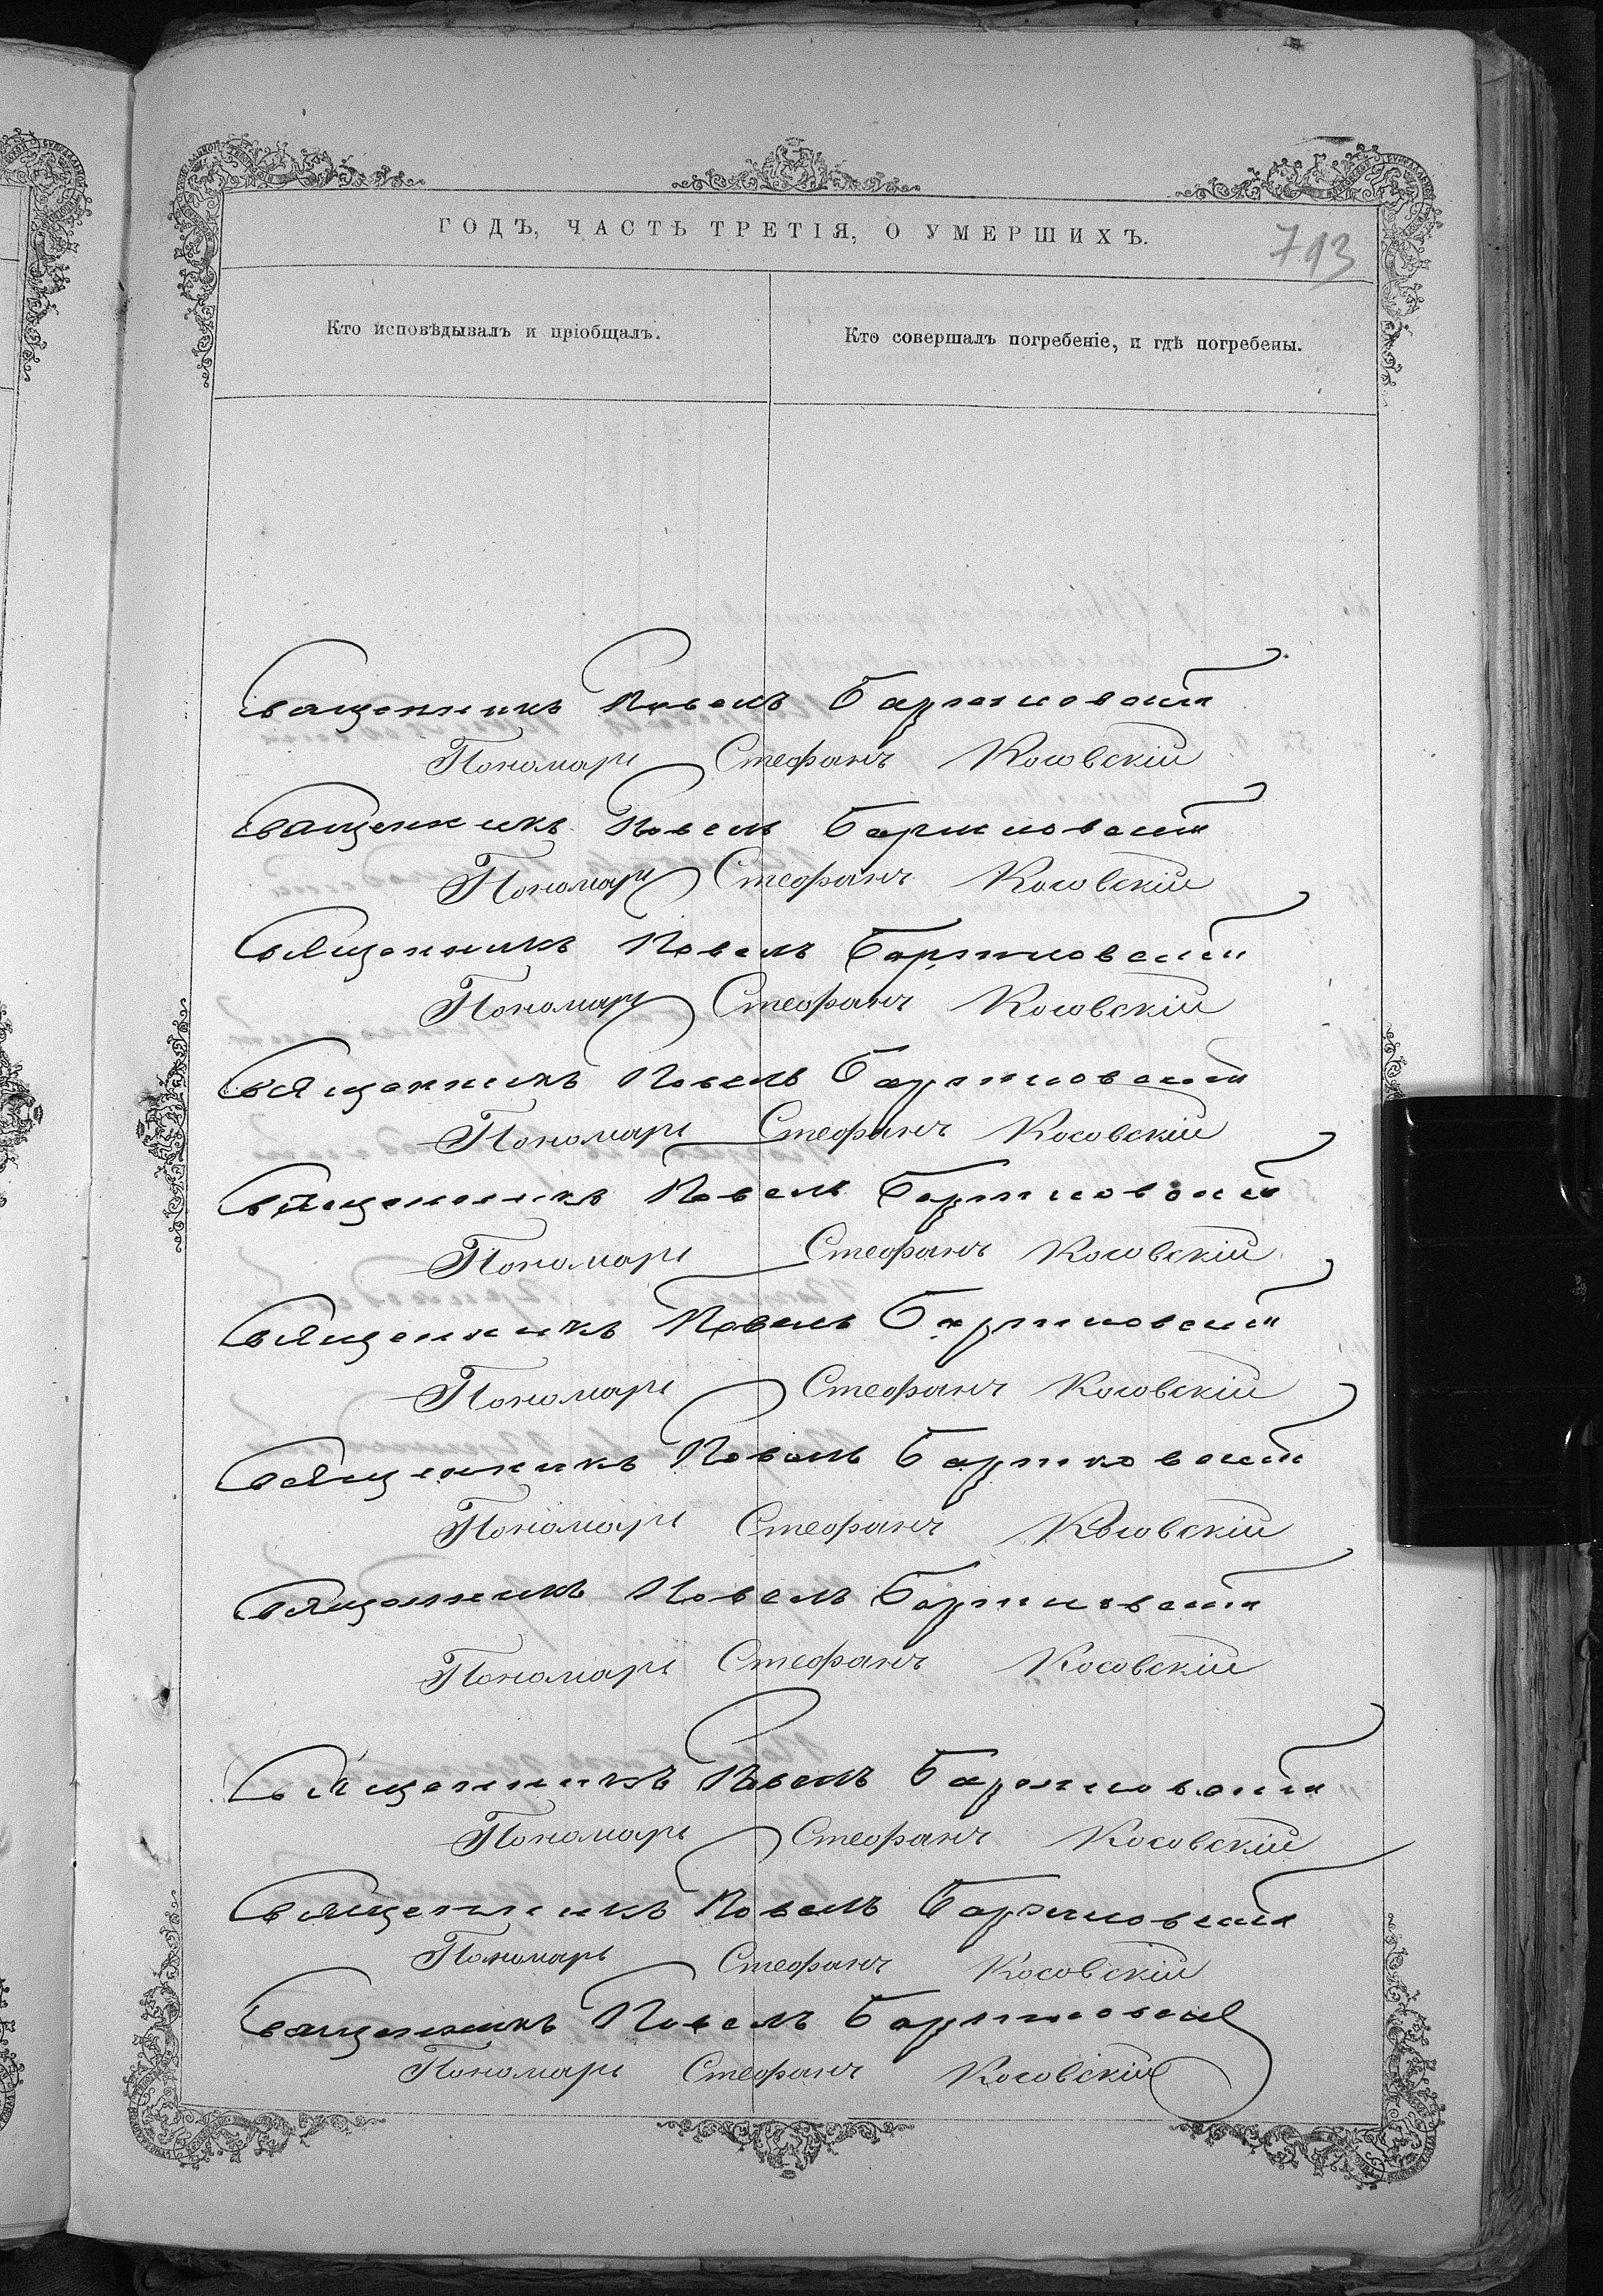 ГОДЪ, ЧАСТЬ ТРЕТІЯ, О УМЕРШИХЪ.
793
Кто исповѣдывалъ и пріобщалъ.
Кто совершалъ погребеніе, и гдѣ погребены.
Священникъ Павелъ Бартновскій
Пономарь Стефанъ Косовскій
Священникъ Павелъ Бартновскій
Пономарь Стефанъ Косовскій
Священникъ Павелъ Бартновскій
Пономарь Стефанъ Косовскій
Священникъ Павелъ Бартновскій
Пономарь Стефанъ Косовскій
Священникъ Павелъ Бартновскій
Пономарь Стефанъ Косовскій
Священникъ Павелъ Бартновскій
Пономарь Стефанъ Косовскій
Священникъ Павелъ Бартновскій
Пономарь Стефанъ Косовскій
Священникъ Павелъ Бартновскій
Пономарь Стефанъ Косовскій
Священникъ Павелъ Бартновскій
Пономарь Стефанъ Косовскій
Священникъ Павелъ Бартновскій
Пономарь Стефанъ Косовскій
Священникъ Павелъ Бартновскій
Пономарь Стефанъ Косовскій